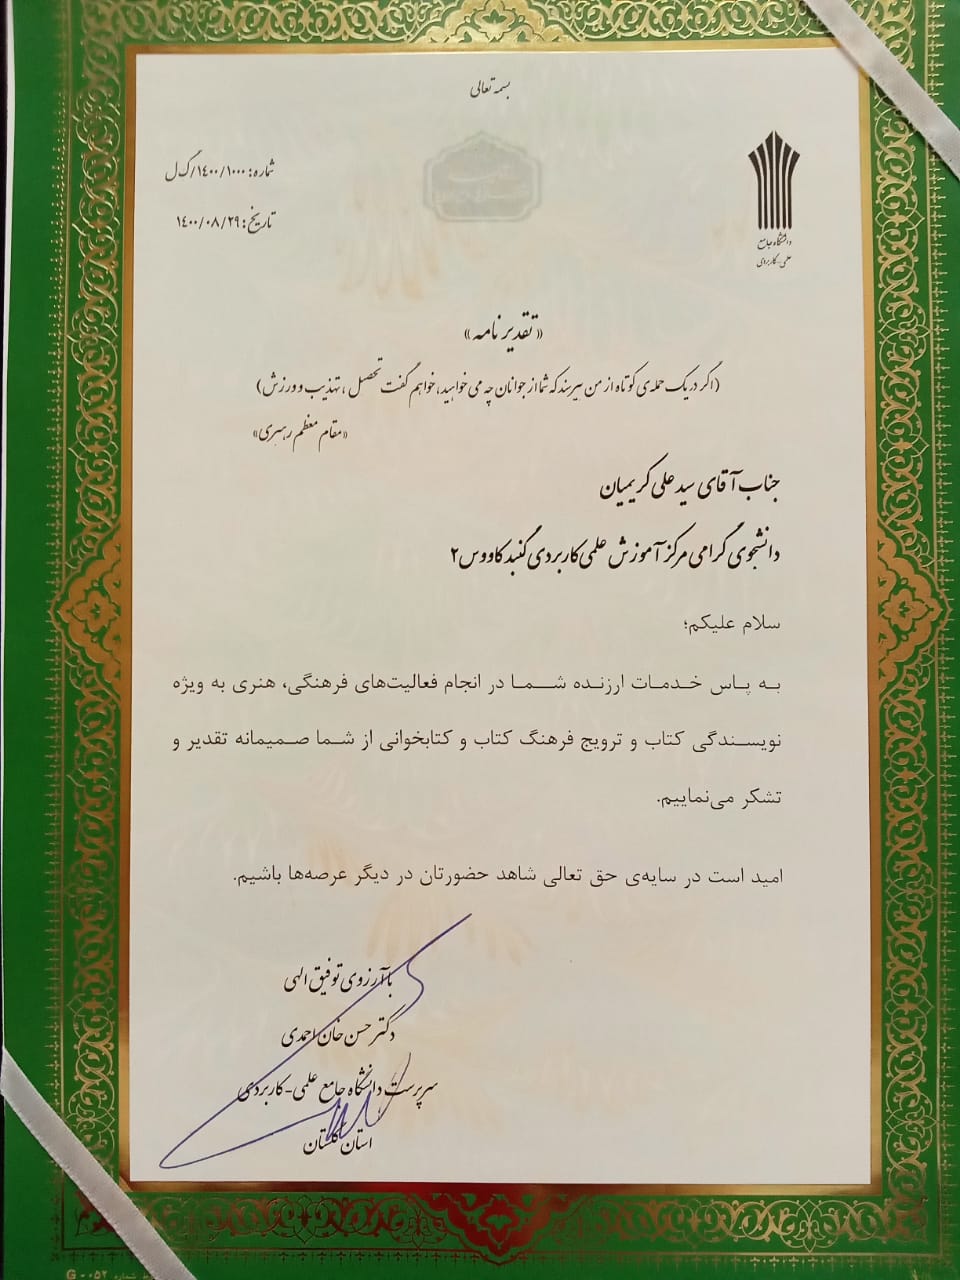 بسمه تعالی
شماره: ۱۴۰۰/۱۰۰۰/ک ل
تاریخ: ۱۴۰۰/۰۸/۲۹
دانشگاه جامع
علمی-کاربردی
«تقدیر نامه»
(اگر در یک جمله‌ی کوتاه از من بپرسند که شما از جوانان چه می خواهید، خواهم گفت تحصیل، تهذیب و ورزش)
«مقام معظم رهبری»
جناب آقای سید علی کریمیان
دانشجوی گرامی مرکز آموزش علمی کاربردی گنبد کاووس ۲
سلام علیکم؛
به پاس خدمات ارزنده شما در انجام فعالیت‌های فرهنگی، هنری به ویژه
نویسندگی کتاب و ترویج فرهنگ کتاب و کتابخوانی از شما صمیمانه تقدیر و
تشکر می‌نماییم.
امید است در سایه‌ی حق تعالی شاهد حضورتان در دیگر عرصه‌ها باشیم.
با آرزوی توفیق الهی
دکتر حسن خان احمدی
سرپرست دانشگاه جامع علمی-کاربردی
استان گلستان
G - ۰۵۲